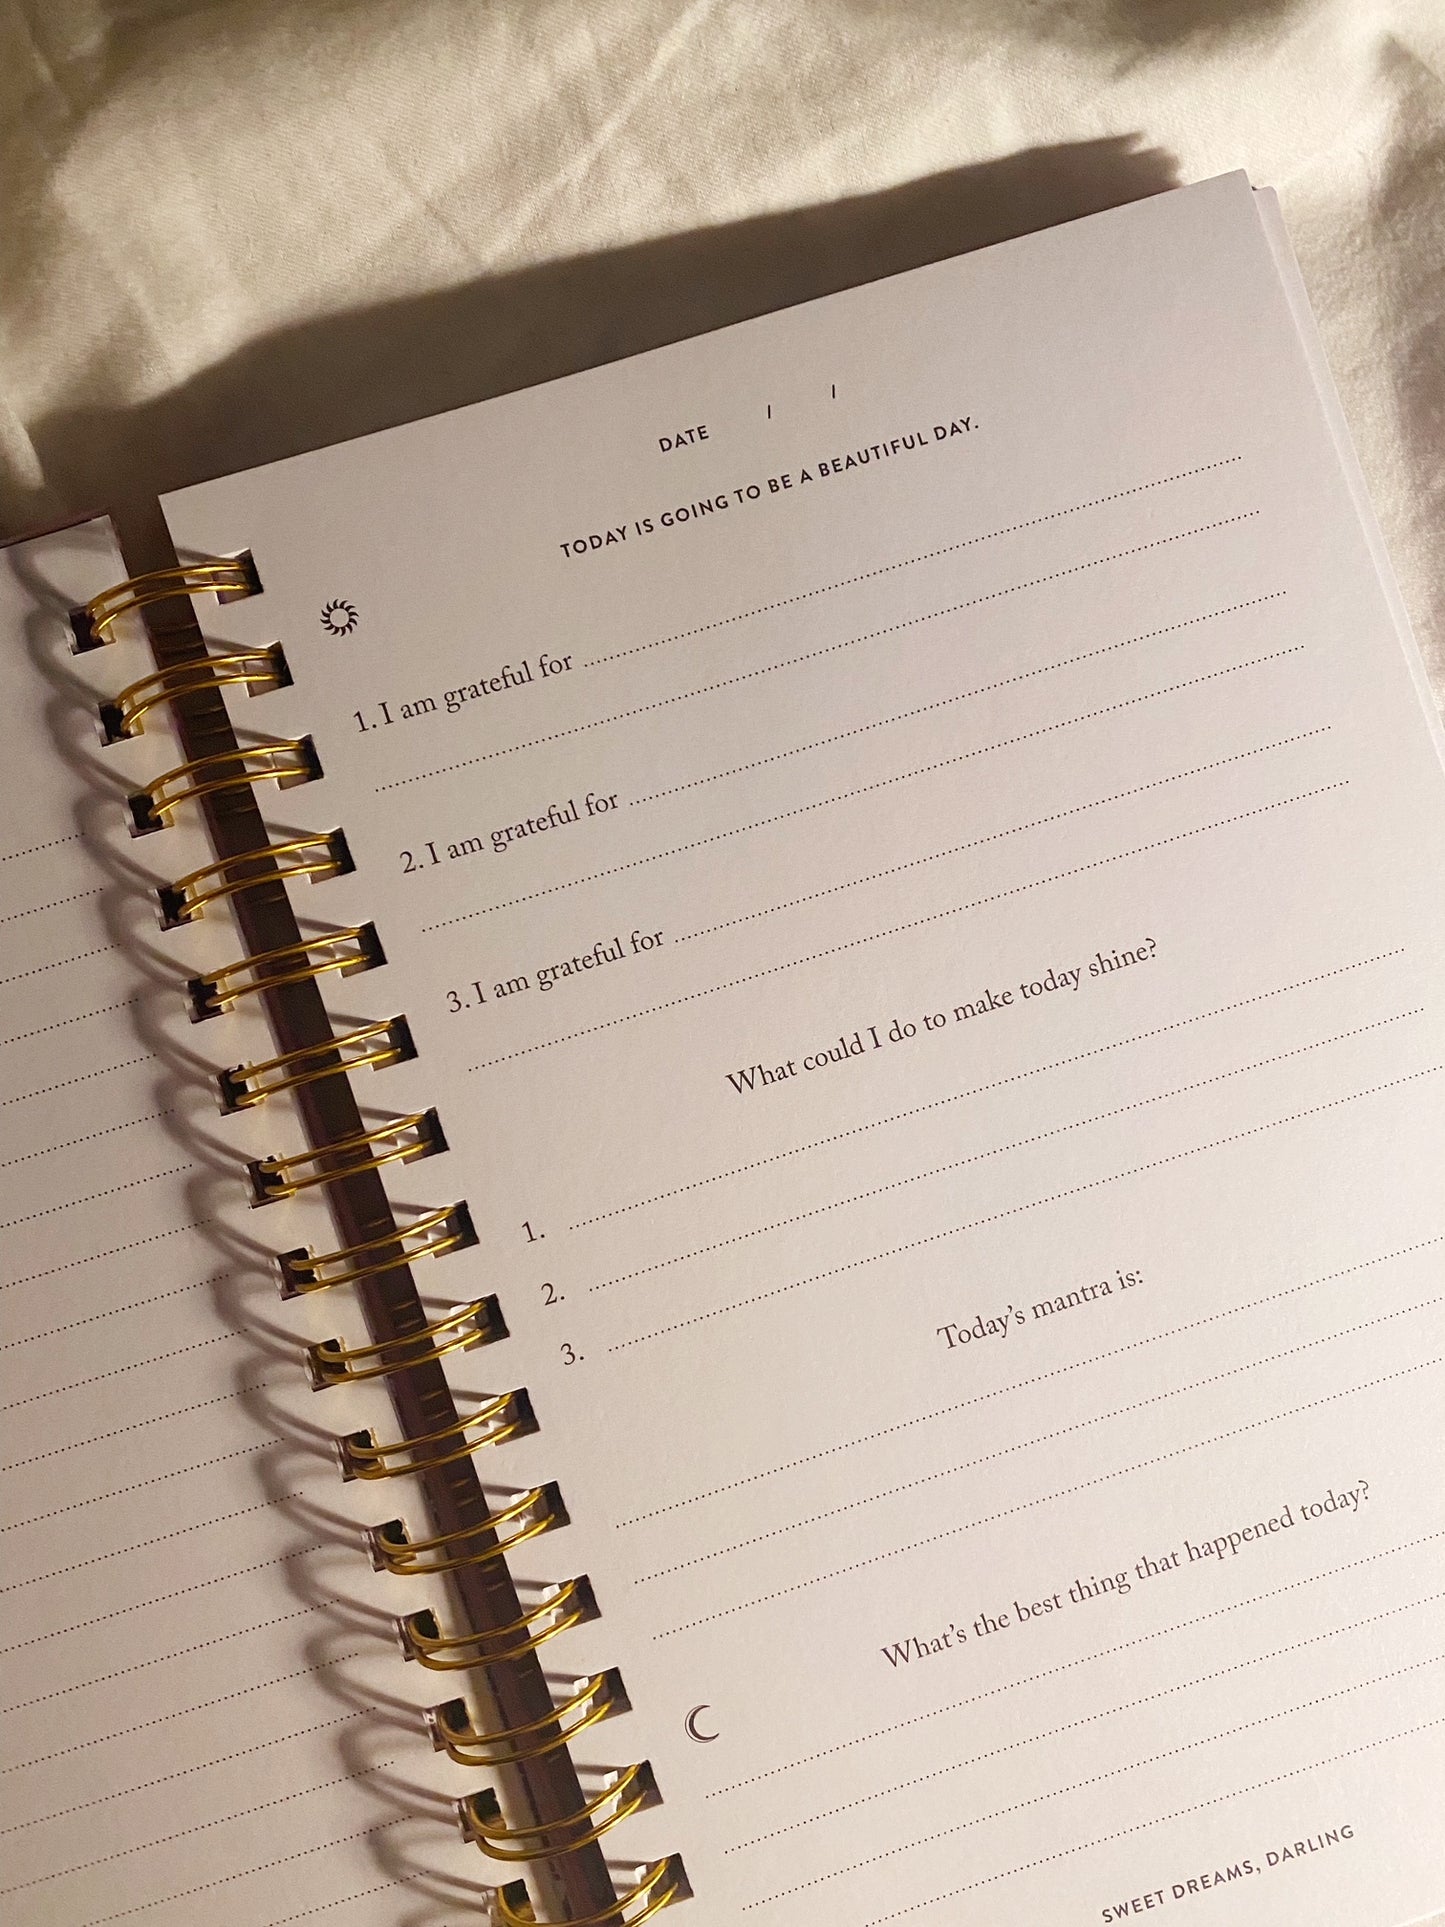 DATE / /
TODAY IS GOING TO BE A BEAUTIFUL DAY.
1. I am grateful for
2. I am grateful for
3. I am grateful for
What could I do to make today shine?
1.
2.
3.
Today's mantra is:
What's the best thing that happened today?
SWEET DREAMS, DARLING